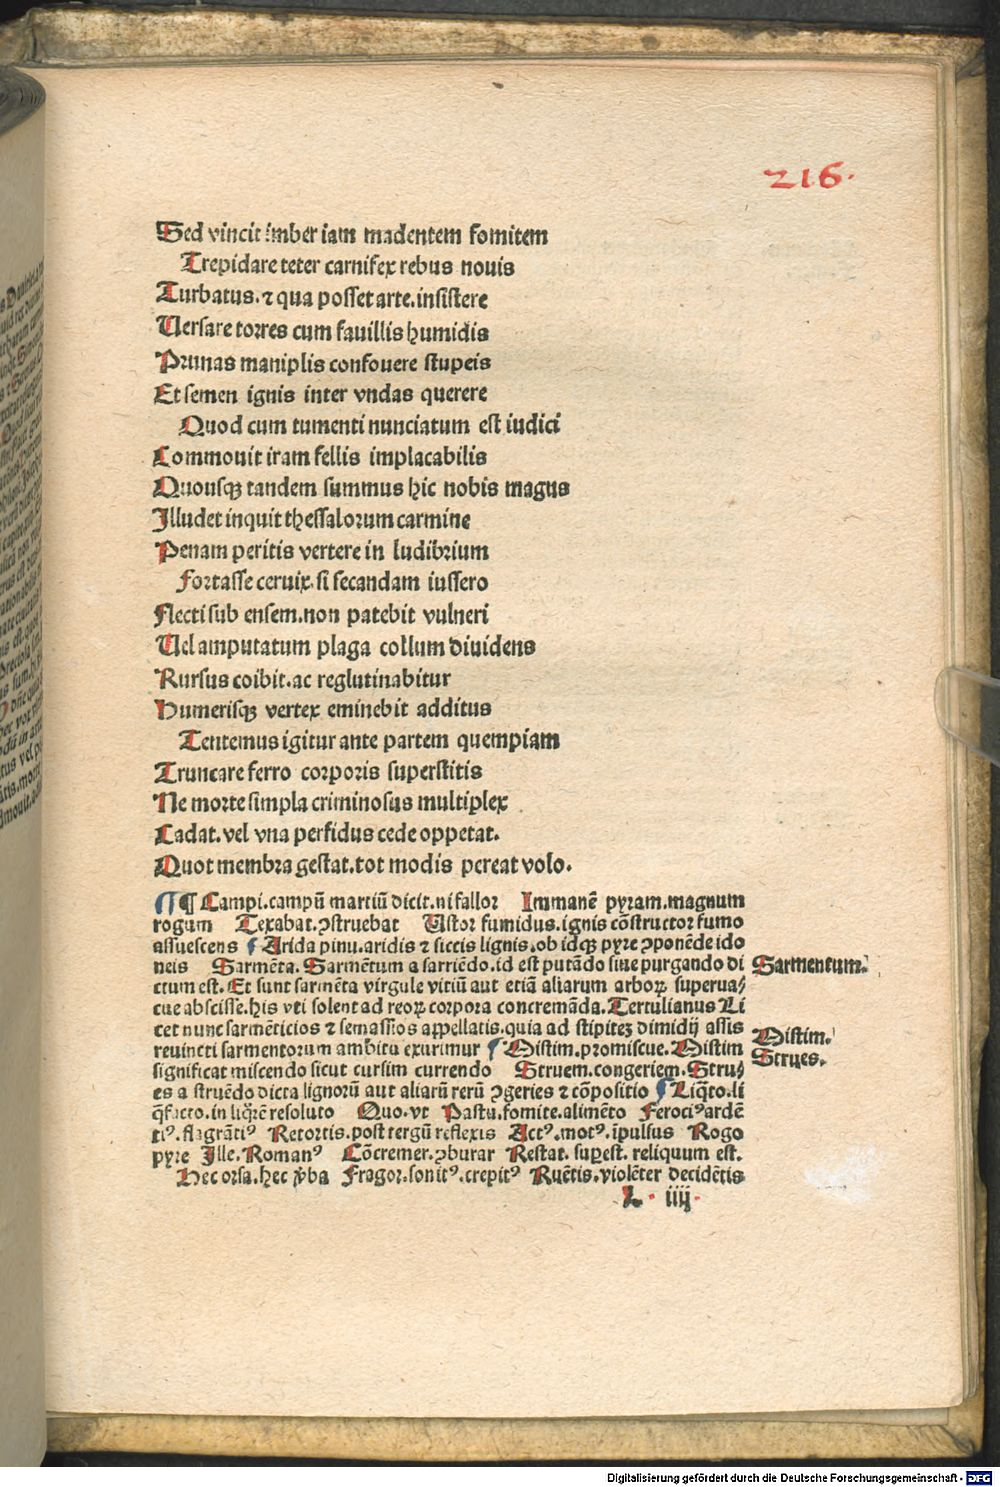 216.
Sed vincit imber iam madentem fomitem
Trepidare teter carnifex rebus nouis
Turbatus. ⁊ qua posset arte. insistere
Uersare torres cum fauillis humidis
Prunas maniplis confouere stupeis
Et semen ignis inter vndas querere
Quod cum tumenti nunciatum est iudici
Commouit iram fellis implacabilis
Quousqꝫ tandem summus hic nobis magus
Illudet inquit thessalorum carmine
Penam peritis vertere in ludibrium
Fortasse ceruix. si secandam iussero
Flecti sub ensem. non patebit vulneri
Uel amputatum plaga collum diuidens
Rursus coibit. ac reglutinabitur
Humerisqꝫ vertex eminebit additus
Tentemus igitur ante partem quempiam
Truncare ferro corporis superstitis
Ne morte simpla criminosus multiplex
Cadat. vel vna perfidus cede oppetat.
Quot membra gestat. tot modis pereat volo.
¶ ¶ Campi. campū martiū dicit. ni fallor Immanē pyram. magnum
rogum Texabat. ꝯstruebat Ustor fumidus. ignis cōstructor fumo
assuescens ¶ Arida pinu. aridis ⁊ siccis lignis. ob idqꝫ pyre ꝯponēde ido
neis Sarmēta. Sarmētum a sarriēdo. id est putādo siue purgando di
ctum est. Et sunt sarmēta virgule vitiū aut etiā aliarum arboꝝ superua/
cue abscisse. his vti solent ad reoꝝ corpora concremāda. Tertulianus Li
cet nunc sarmēticios ⁊ semassios appellatis. quia ad stipitez dimidij assis
reuincti sarmentorum ambitu exurimur ¶ Mistim. promiscue. Mistim
significat miscendo sicut cursim currendo Struem. congeriem. Stru/
es a struēdo dicta lignorū aut aliarū rerū ꝯgeries ⁊ cōpositio ¶ Liq̄to. li
q̄facto. in liq̄rē resoluto Quo. vt Pastu. fomite. alimēto Ferociꝰ ardē
tiꝰ. flagrātiꝰ Retortis. post tergū reflexis Actꝰ. motꝰ. īpulsus Rogo
pyre Ille. Romanꝰ Cōcremer. ꝯburar Restat. suꝑest. reliquum est.
Hec orsa. hec v̄ba Fragor. sonitꝰ. crepitꝰ Ruētis. violēter decidētis
L. iiij.
Sarmentum.
Mistim.
Strues.
Digitalisierung gefördert durch die Deutsche Forschungsgemeinschaft - DFG